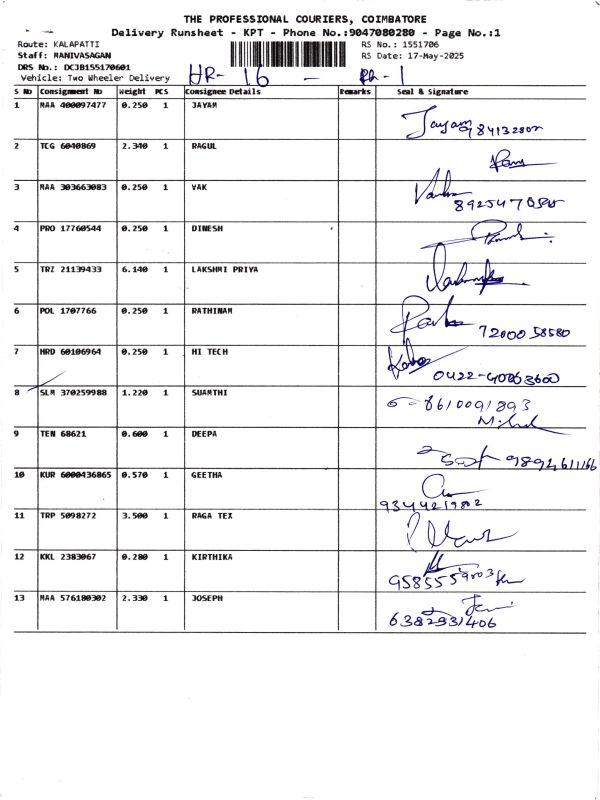 THE PROFESSIONAL COURIERS, COIMBATORE
Delivery Runsheet - KPT - Phone No.:9047080280 - Page No.:1
Route: KALAPATTI RS No.: 1551706
Staff: MANIVASAGAN RS Date: 17-May-2025
DRS No.: DCJB155170601
Vehicle: Two Wheeler Delivery HR- 16 -
S NO Consignment No Weight PCS Consignee Details Remarks Seal & Signature
1 MAA 400097477 0.250 1 JAYAM Jayam
2 TCG 6040869 2.340 1 RAGUL
3 MAA 303663083 0.250 1 VAK
4 PRO 17760544 0.250 1 DINESH
5 TRZ 21139433 6.140 1 LAKSHMI PRIYA
6 POL 1707766 0.250 1 RATHINAM 72000 58580
7 HRD 60106964 0.250 1 HI TECH
0422-40063600
8 SLM 370259988 1.220 1 SUAMTHI 8610091893
9 TEN 68621 0.600 1 DEEPA
9894611166
10 KUR 6000436865 0.570 1 GEETHA
9344219802
11 TRP 5098272 3.500 1 RAGA TEX
12 KKL 2383067 0.280 1 KIRTHIKA
9585559003
13 MAA 576180302 2.330 1 JOSEPH
6382931406